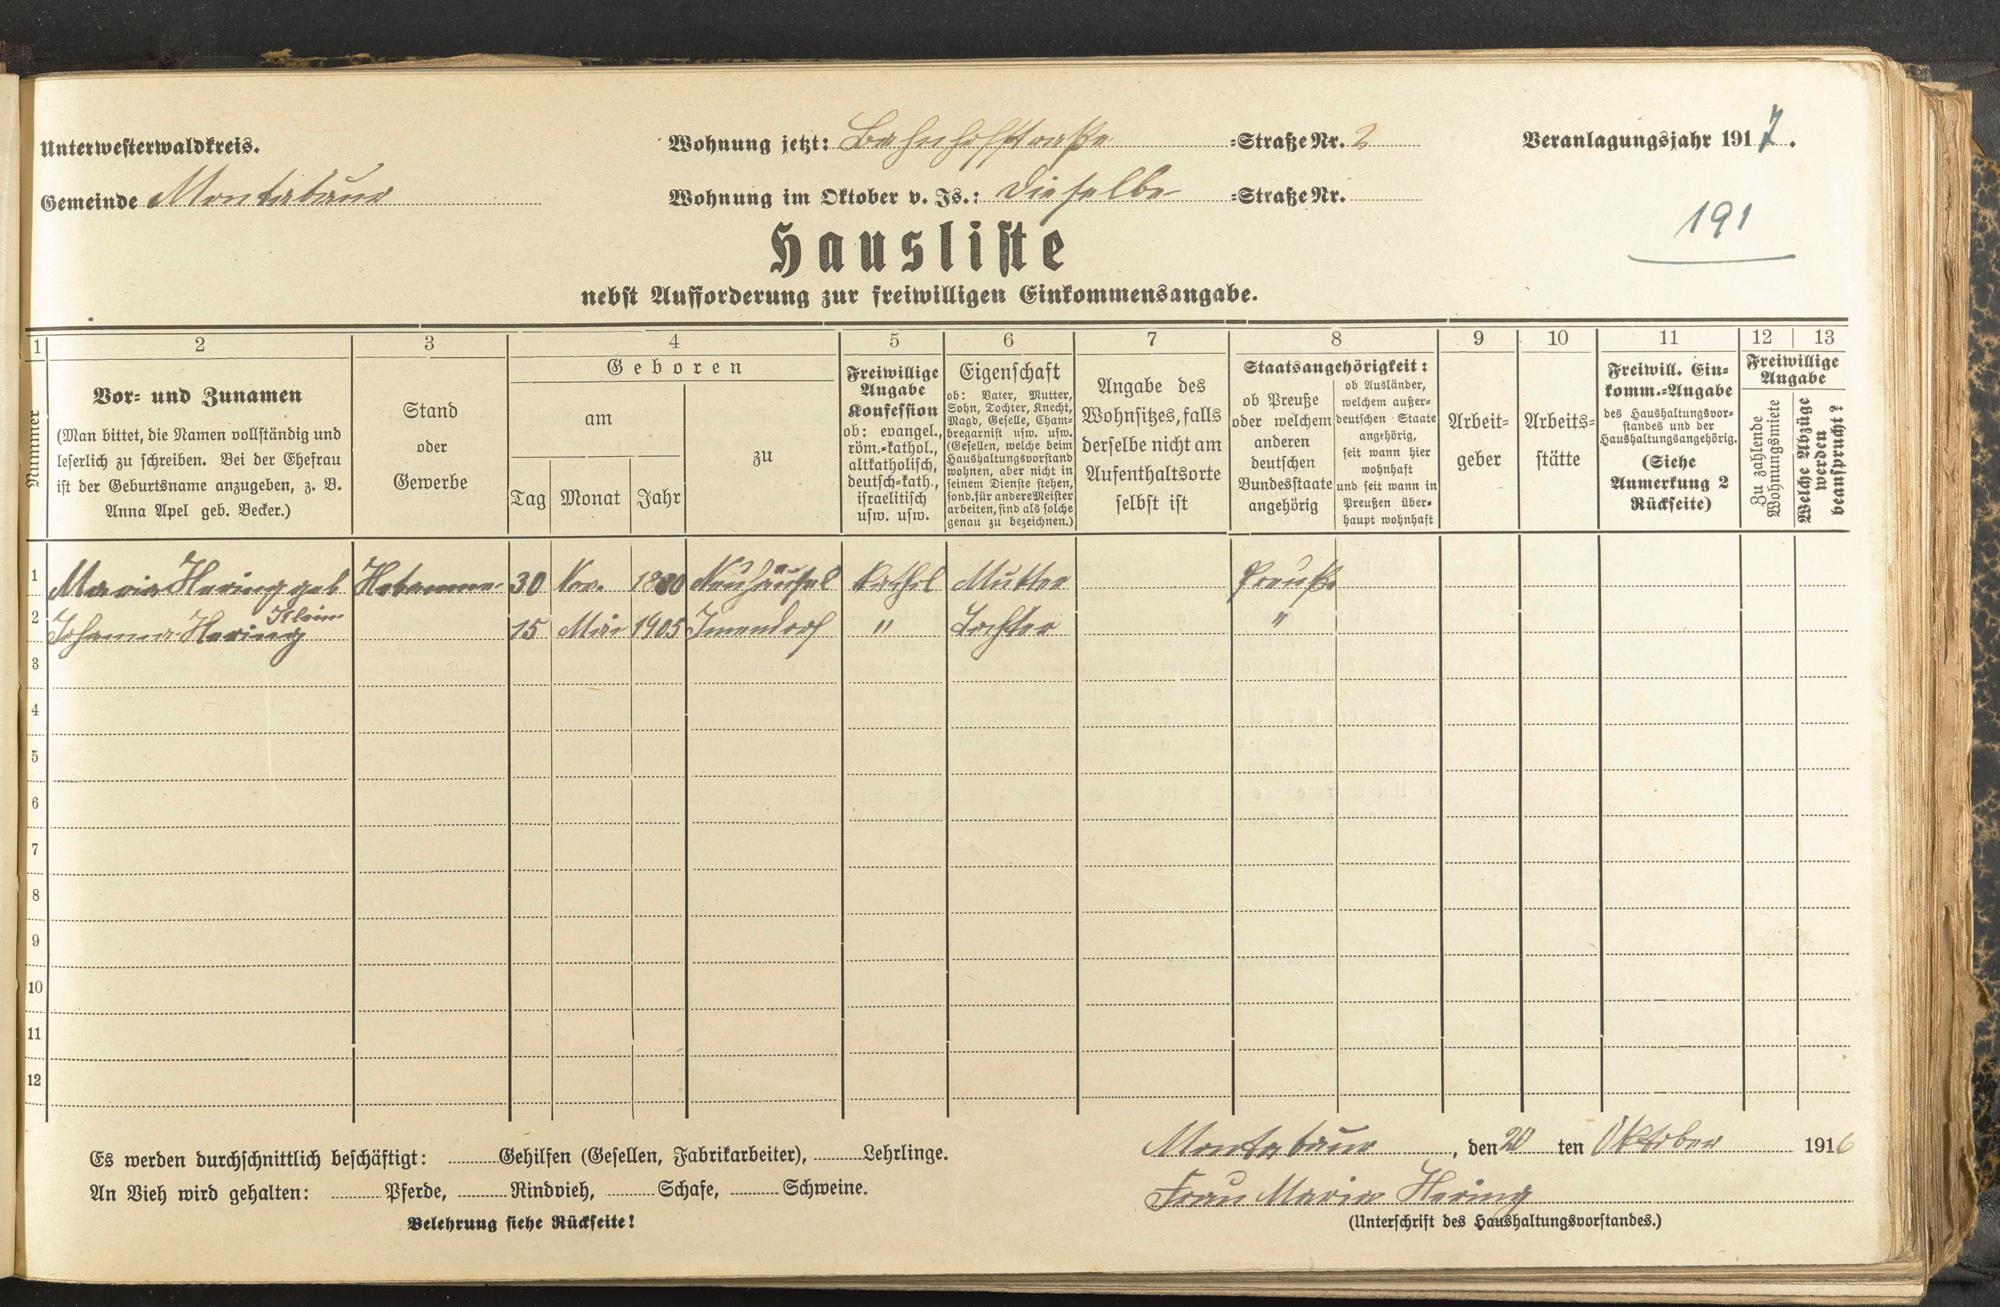 Unterwesterwaldkreis.
Wohnung jetzt: Bahnhofstraße =Straße Nr. 2
Veranlagungsjahr 1917.
Gemeinde Montabaur
Wohnung im Oktober v. Js.: Dieselbe =Straße Nr.
191
Hausliste
nebst Aufforderung zur freiwilligen Einkommensangabe.
1 2 3 4 5 6 7 8 9 10 11 12 13
Nummer
Vor- und Zunamen
(Man bittet, die Namen vollständig und
leserlich zu schreiben. Bei der Ehefrau
ist der Geburtsname anzugeben, z. B.
Anna Apel geb. Becker.)
Stand
oder
Gewerbe
Geboren
am
Tag Monat Jahr
zu
Freiwillige
Angabe
Konfession
ob: evangel.,
röm.-kathol.,
altkatholisch,
deutsch-kath.,
israelitisch
usw. usw.
Eigenschaft
ob: Vater, Mutter,
Sohn, Tochter, Knecht,
Magd, Geselle, Cham-
bregarnist usw. usw.
(Gesellen, welche beim
Haushaltungsvorstand
wohnen, aber nicht in
seinem Dienste stehen,
sond. für andere Meister
arbeiten, sind als solche
genau zu bezeichnen.)
Angabe des
Wohnsitzes, falls
derselbe nicht am
Aufenthaltsorte
selbst ist
Staatsangehörigkeit:
ob Preuße
oder welchem
anderen
deutschen
Bundesstaate
angehörig
ob Ausländer,
welchem außer-
deutschen Staate
angehörig,
seit wann hier
wohnhaft
und seit wann in
Preußen über-
haupt wohnhaft
Arbeit-
geber
Arbeits-
stätte
Freiwill. Ein-
komm.-Angabe
des Haushaltungsvor-
standes und der
Haushaltungsangehörig.
(Siehe
Anmerkung 2
Rückseite)
Freiwillige
Angabe
Zu zahlende
Wohnungsmiete
Welche Abzüge
werden
beansprucht?
1 Maria Hering geb Hebamme 30 Nov. 1880 Neuhäusel Kathol Mutter Preuße
Klein
2 Johanna Hering 15 Mai 1905 Imendorf " Tochter "
3
4
5
6
7
8
9
10
11
12
Es werden durchschnittlich beschäftigt: Gehilfen (Gesellen, Fabrikarbeiter), Lehrlinge.
An Vieh wird gehalten: Pferde, Rindvieh, Schafe, Schweine.
Belehrung siehe Rückseite!
Montabaur, den 20 ten Oktober 1916
Frau Maria Hering
(Unterschrift des Haushaltungsvorstandes.)